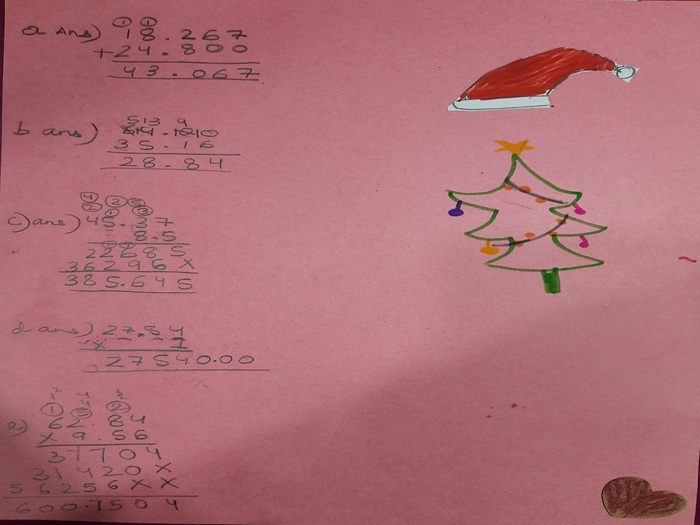 a ans) 18.267
+24.800
43.067
b ans)
35.16
28.84
c) ans) 45.37
8.5
22685
36296X
385.645
d ans) 27.54
27540.00
e) 62.84
X 9.56
37704
31420X
56256XX
6007504